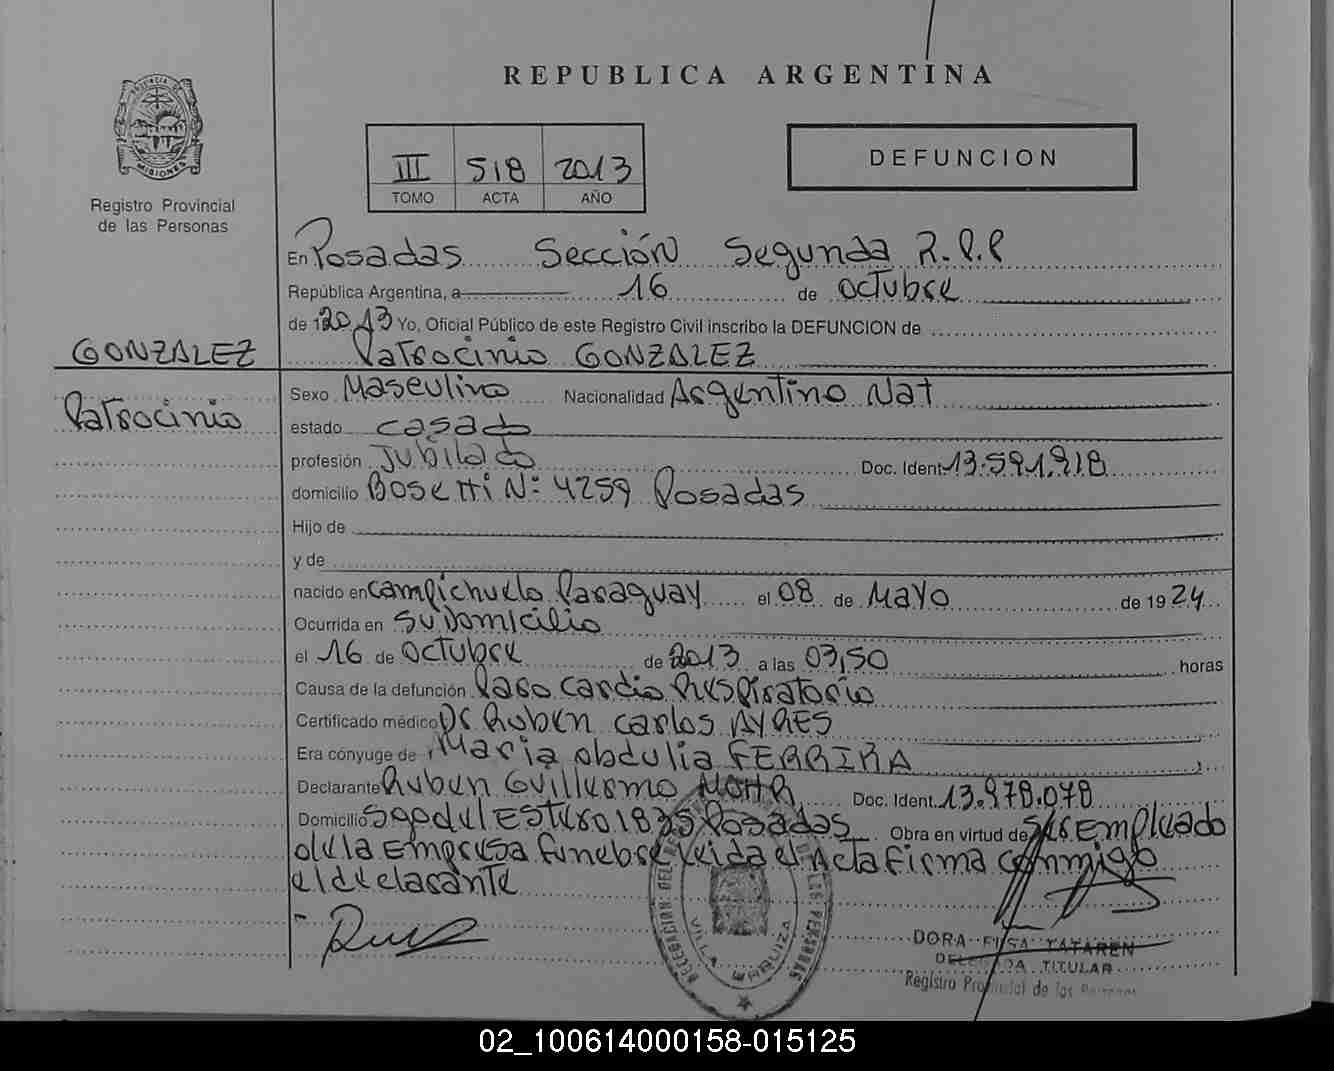 REPUBLICA ARGENTINA
PROVINCIA DE MISIONES
Registro Provincial
de las Personas
III 518 2013
TOMO ACTA AÑO
DEFUNCION
En Posadas Sección Segunda R.P.P
República Argentina, a 16 de octubre
de 2013 Yo, Oficial Público de este Registro Civil inscribo la DEFUNCION de
GONZALEZ
Patrocinio
Patrocinio GONZALEZ
Sexo Masculino Nacionalidad Argentino Nat
estado casado
profesión Jubilado Doc. Ident. 13.591.918
domicilio Bosetti Nº 4259 Posadas
Hijo de
y de
nacido en Campichuelo Paraguay el 08 de Mayo de 1924
Ocurrida en su Domicilio
el 16 de octubre de 2013 a las 03,50 horas
Causa de la defunción Paro Cardio Respiratorio
Certificado médico Dr Ruben Carlos AYRES
Era cónyuge de Maria Obdulia FERRIRA
Declarante Ruben Guillermo MOHR Doc. Ident. 13.978.078
Domicilio Sgo del Estero 1835 Posadas Obra en virtud de ser Empleado
de la Empresa funebre leida el Acta firma conmigo
el declarante
DELEGACION DEL REGISTRO DE LAS PERSONAS
VILLA SARUIZA
DORA ELSA TATAREN
DELEGADA TITULAR
Registro Provincial de las Personas
02_100614000158-015125